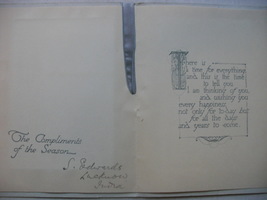 The Compliments
of the Season
J. Edwards
Lucknow
India
There is
a time for everything
and this is the time
to tell you
am thinking of you
and wishing you
every happiness
not only for to-day but
for all the days
and years to come.